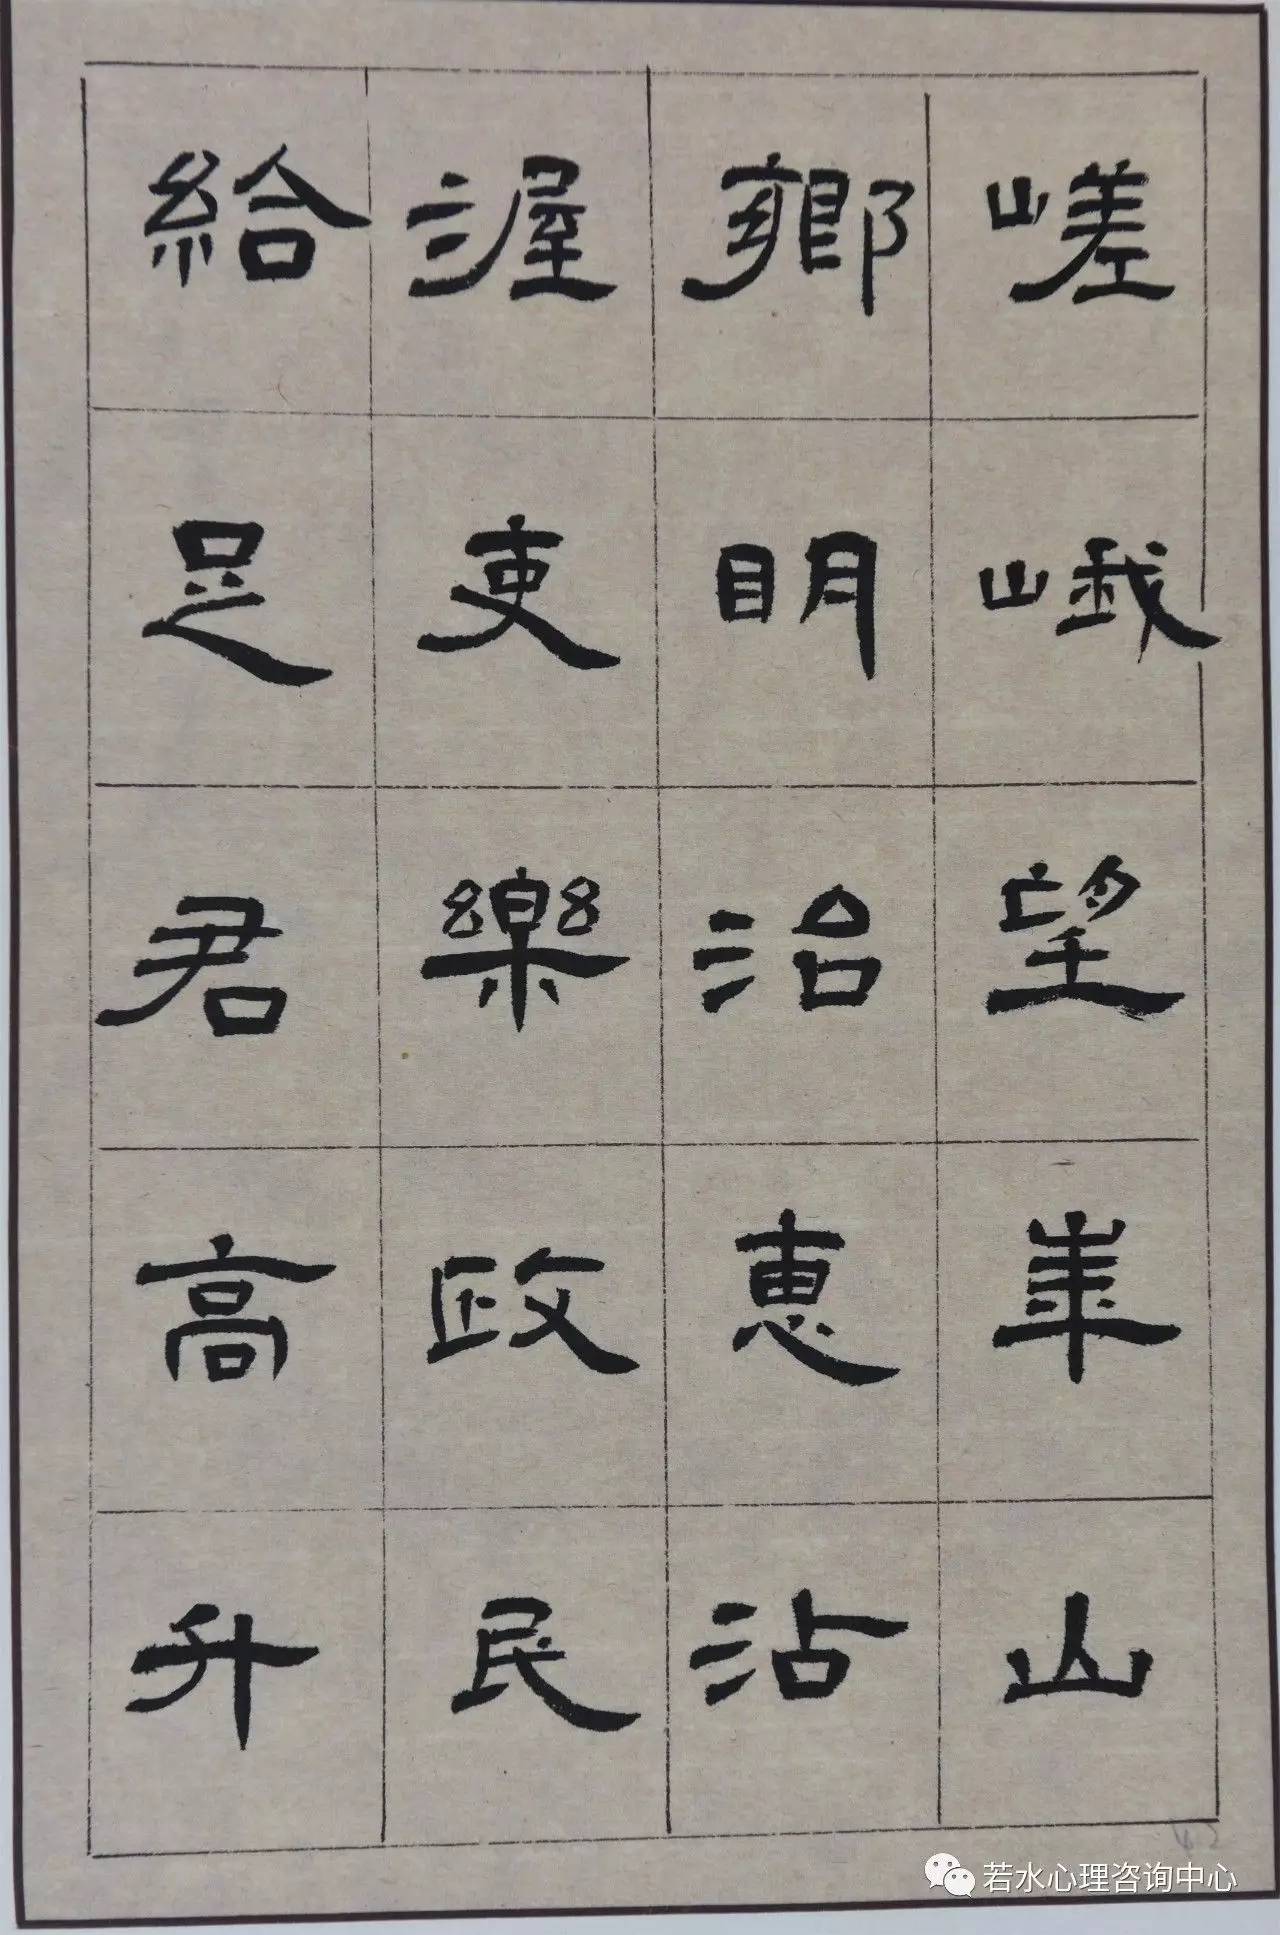 嵯峨望崋山
鄉明治惠沾
渥吏樂政民
給足君高升
若水心理咨询中心